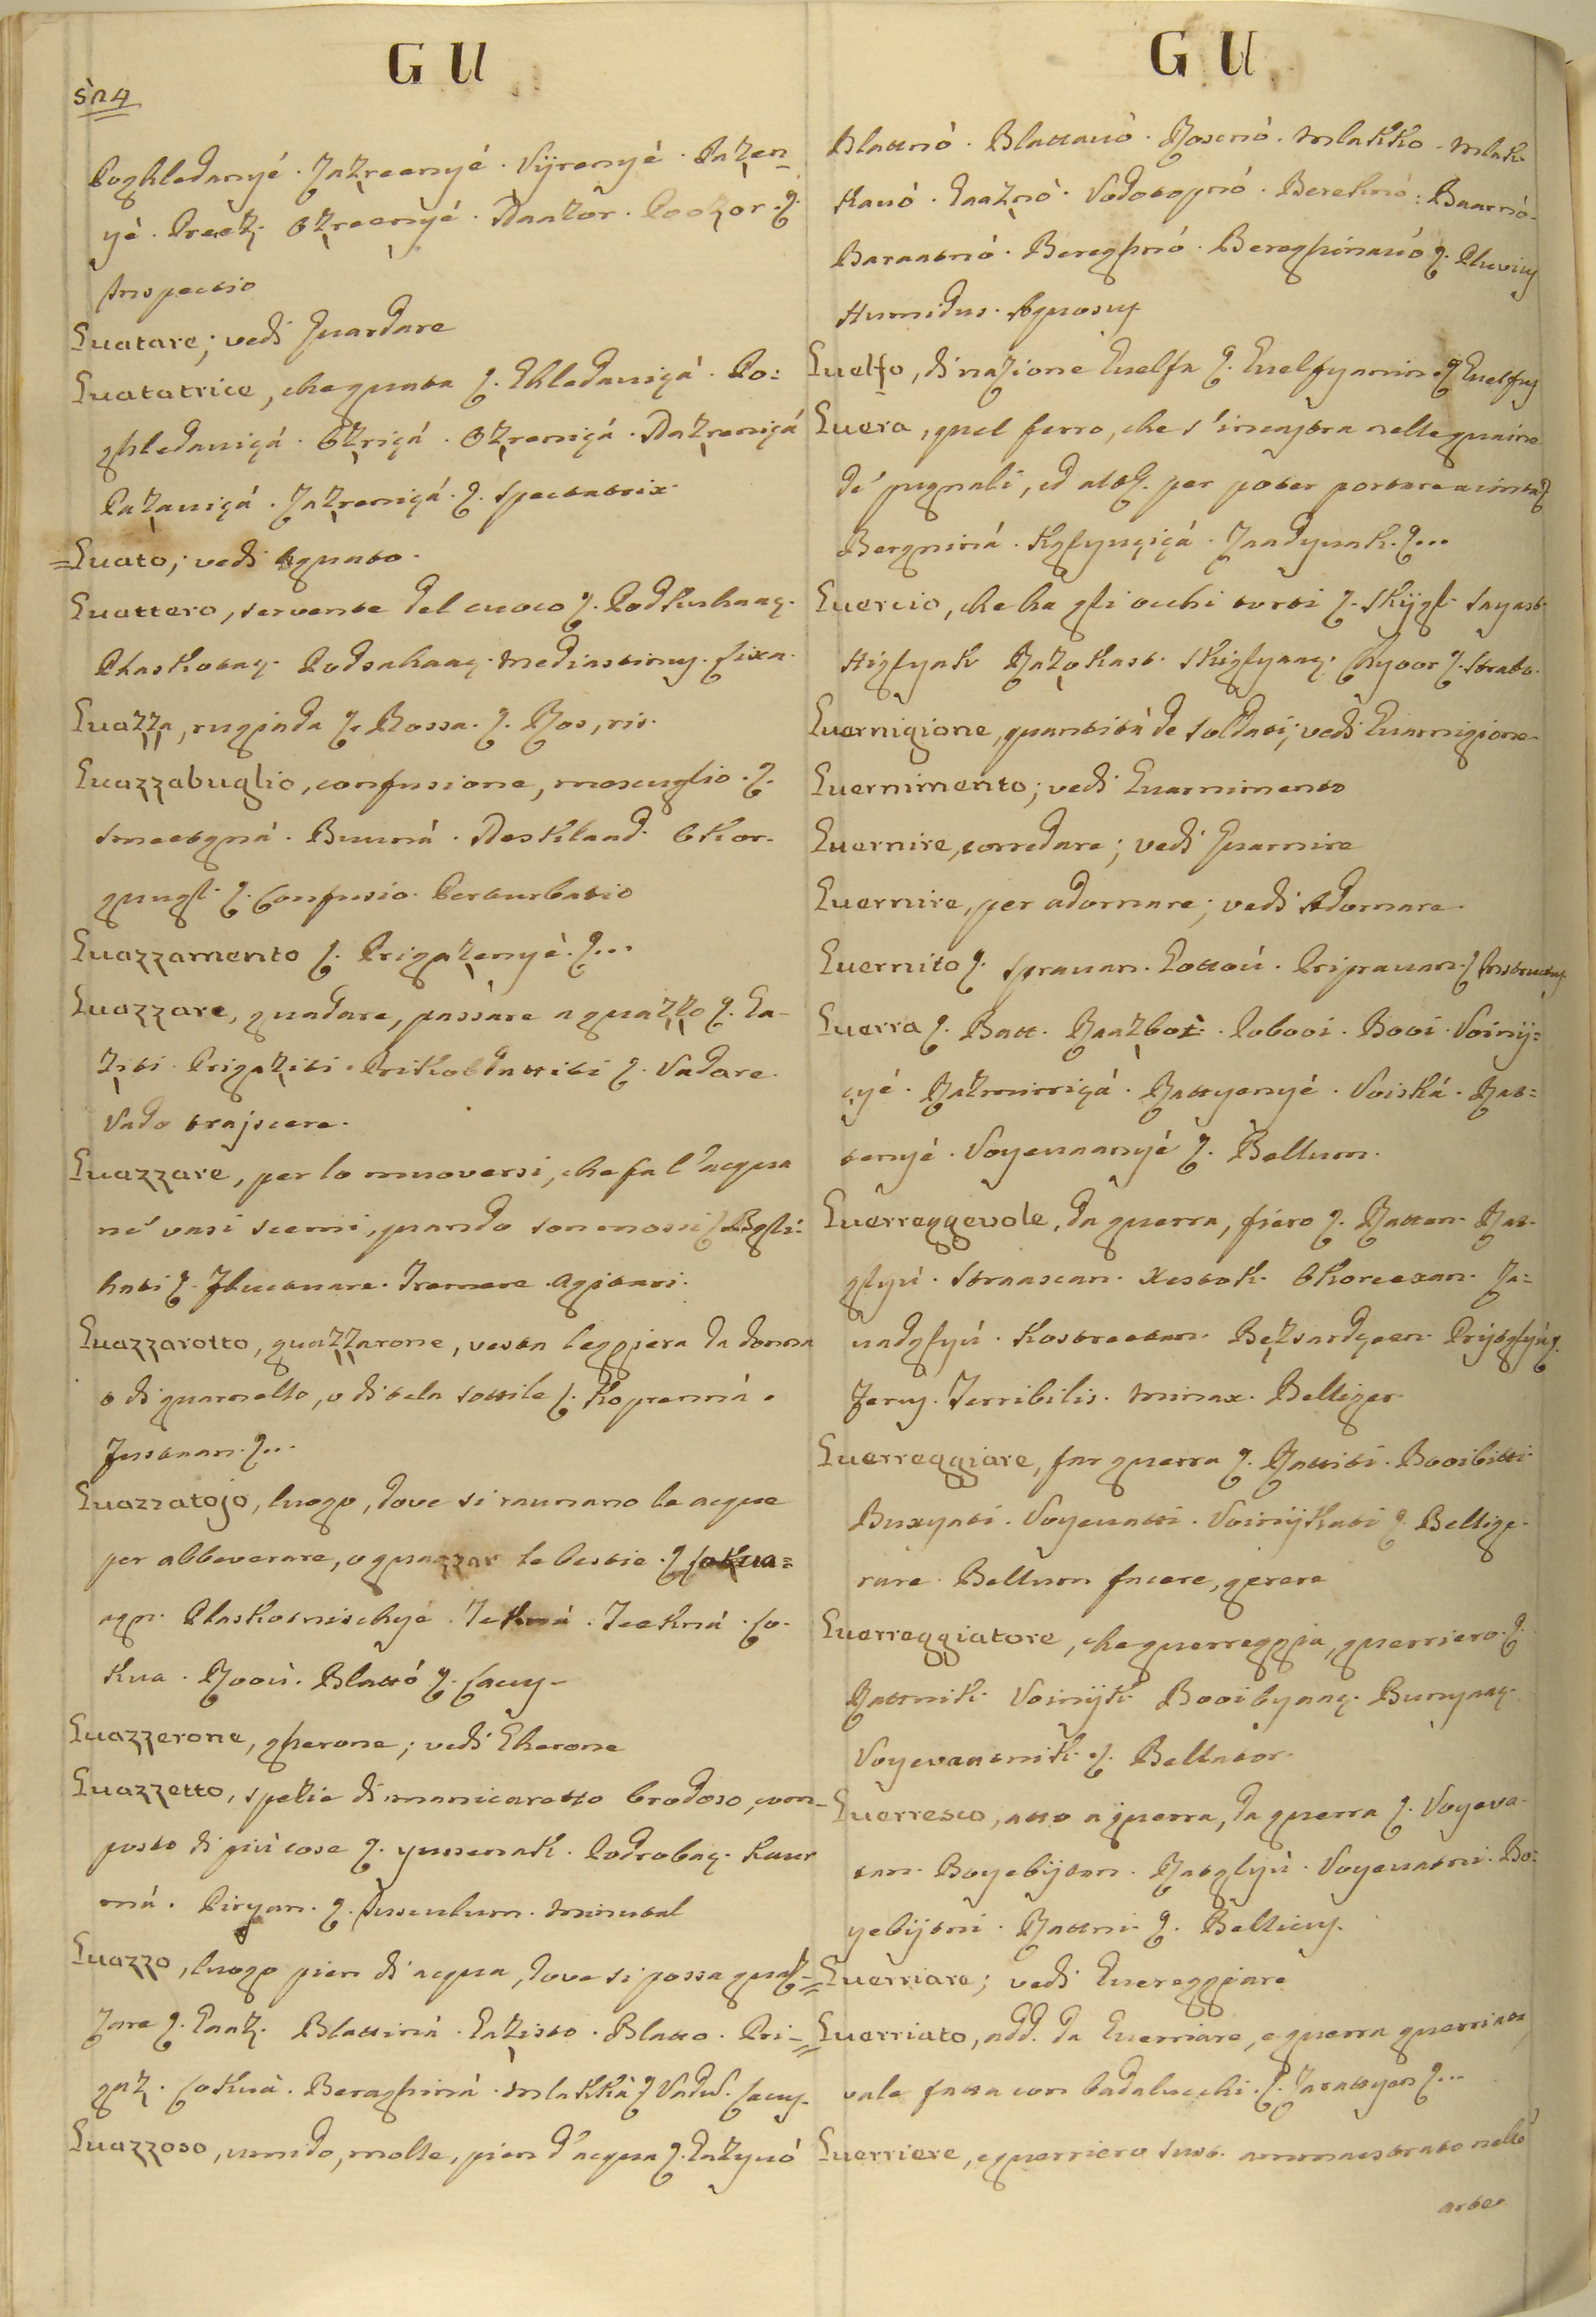 GU
GU
Poghledanyé. Zazreenyé. Viirenyé. Pazen-
yé. Preez. Ozreenyé. Naazor. Poozor. ꝗ.
Inspectio
Guatare; vedi Guardare
Guatatrice, che guata ꝗ. Ghledauiça. Po:
ghledauiçá. Ozriçá. Ozreniçá. Nazreniçá
Pazauiçá. Zazreniçá. ꝗ. Spectatrix.
=Guato; vedi Aguato.
Guattero, servente del cuoco ꝗ. Podkuhaaç.
Plaskotaç. Podsakaaç. Mediastinus. Lixa.
Guazza, rugiada ꝗ. Rossa. ꝗ. Ros, ris.
Guazzabuglio, confusione, mescuglio. ꝗ.
Smeetgná. Buuná. Nesklaad. Okor-
gnugl. ꝗ. Confusio. Perturbatio
Guazzamento ꝗ. Prigazenyé. ꝗ...
Guazzare, guadare, passare a guazzo ꝗ. Ga-
ziti. Prigaziti. ꝗ. Vadare.
Vado trajicere.
Guazzare, per lo muoversi, che fa l'acqua
ne' vasi scemi, quando son mossi ꝗ. Bgli:
kati ꝗ. Fluctuare. Tremere. Agitari.
Guazzarotto, guazzarone, vesta leggiera da donna
o di guarnello, o di tela sottile ꝗ. Koprenná.
Justaan. ꝗ...
Guazzatojo, luogo, dove si raunano le acque
per abbeverare, o guazzar le bestie. ꝗ. Lokua=
agn. Plaskotnischyé. Tekná. Teekná. Lo-
kua. Rooú. Blattó ꝗ. Lacus.
Guazzerone, gherone; vedi Gherone
Guazzetto, spezie di manicaretto brodoso, com-
posto di più cose ꝗ. Yussenak. Podrobaç. Kaur
má. Piryan. ꝗ. Jusculum. Minutal
Guazzo, luogo pien di acqua, dove si possa guaz-
zare ꝗ. Gaaz. Blattiná. Gazisto. Blatto. Pri-
gaz. Lokuá. Bereghiná. Mlakká ꝗ. Vadus. Lacus.
Guazzoso, umido, molle, pien d'acqua ꝗ. Gazyuó
Blattnó. Blattauó. Rosenó. Mlakko. Mlak-
kauó. Gaaznó. Vodotopnó. Bereknó: Baarnó.
Baraatnó. Bereghnó. Bereghinauó ꝗ. Pluvius
Humidus. Aquosus.
Guelfo, di nazione Guelfa ꝗ. Guelfyanin ꝗ. Guelfus
Guera, quel ferro, che s'incastra nelle guaine
de' pugnali, ed altr. per poter portare a cinta ꝗ.
Bergniná. Kglyuçiçá. Zaadyuak. ꝗ...
Guercio, che ha gli occhi torti ꝗ. Skiigl. Sayast.
Higlyak Razokast. Skiglyaaç. ꝗ. Strabo.
Guernigione, quantità de soldati; vedi Guarnigione
Guernimento; vedi Guarnimento
Guernire, corredare; vedi Guarnire
Guernire, per adornare; vedi Adornare.
Guernito ꝗ. Sprauan. Gottoú. Priprauan. ꝗ. Instructus.
Guerra ꝗ. Ratt. Raazboi. Pobooi. Booi. Voinij=
cyé. Razmirriçá. Rattyenyé. Voiská. Rat=
tenyé. Voyeuaanyé ꝗ. Bellum.
Guerreggevole, da guerra, fiero ꝗ. Rattan. Rat-
glyú. Straascan. Xestok. Okoreexan. Za=
uadglyú. Kostreetan. Bezsardçeen. Prijtglyú ꝗ.
Ferus. Terribilis. Minax. Belliger.
Guerreggiare, far guerra ꝗ. Rattiti. Booibitti
Buxyati. Voyeuatti. Voinijkati ꝗ. Bellige-
rare. Bellum facere, gerere
Guerreggiatore, che guerreggia, guerriero. ꝗ.
Rattnik. Voinijk. Booibyaaç. Bunyaaç.
Voyevaatnik. ꝗ. Bellator.
Guerresco, atto a guerra, da guerra ꝗ. Voyeva-
tan. Boyebijtan. Ratglyú. Voyeuatni. Bo:
yebijtni. Rattni. ꝗ. Bellicus.
=Guerriare; vedi Guereggiare
=Guerriato, add. da Guerriare, e guerra guerriata
vale fatta con badalucchi. ꝗ. Zarattyen ꝗ...
Guerriere, e guerriero sust. ammaestrato nell'
arte